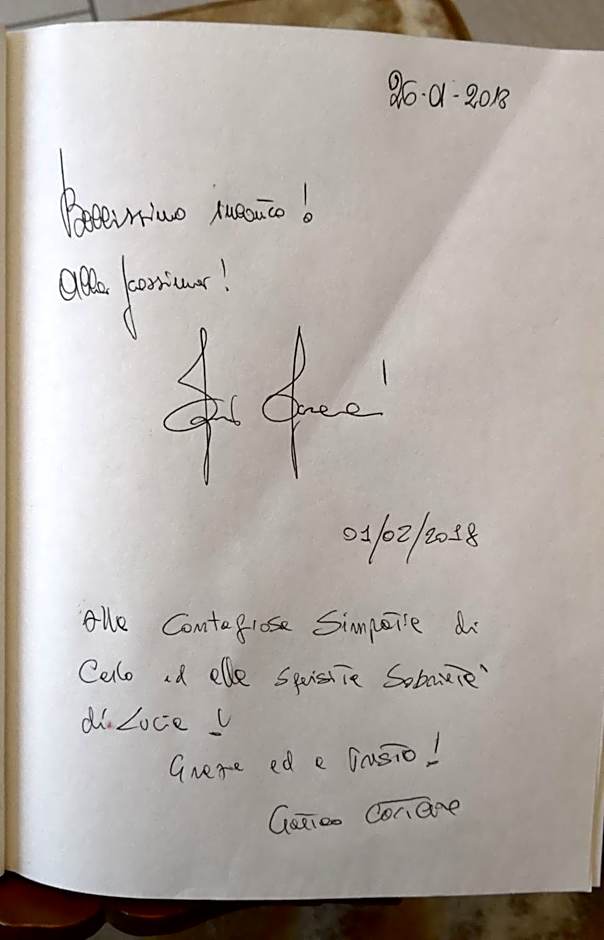 26-01-2018
Bellissimo incontro!
Alla prossima!
01/02/2018
Alla Contagiosa Simpatia di
Carlo ed alla squisita Sobrietà
di Lucia!
Grazie ed a presto!